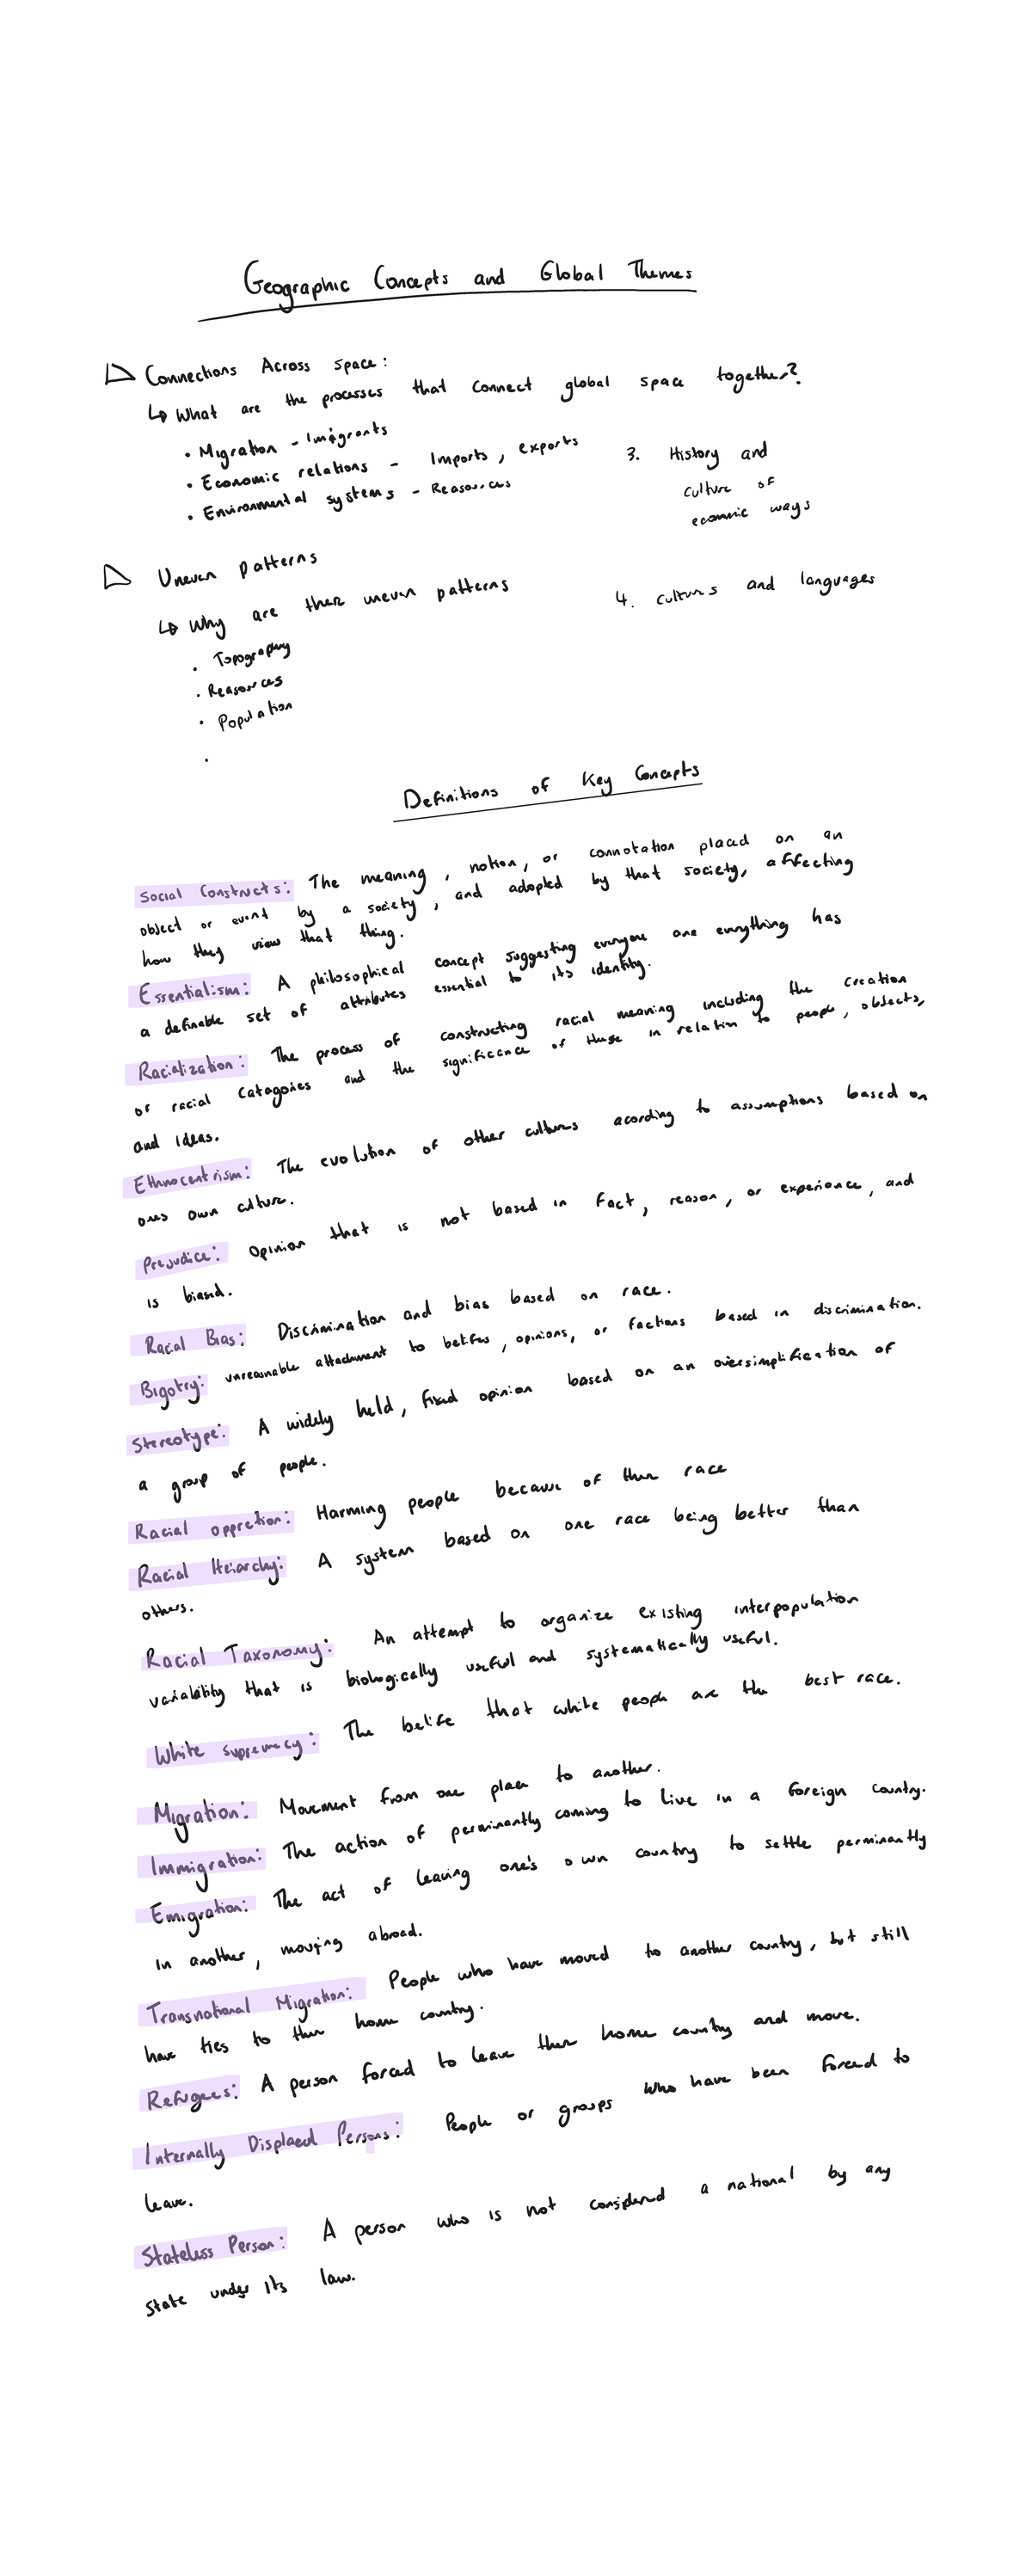 Geographic Concepts and Global Themes
Connections Across space:
↳ What are the processes that connect global space together?
• Migration - Imigrants
• Economic relations - Imports, exports
• Environmental systems - Reasources
3. History and
culture of
ecomic ways
Uneven patterns
↳ Why are their uneven patterns
• Topography
• Reasources
• Population
•
4. cultures and languages
Definitions of Key Concepts
Social Constructs: The meaning, notion, or connotation placed on an
object or event by a society, and adopted by that society, affecting
how they view that thing.
Essentialism: A philosophical concept suggesting everyone one everything has
a definable set of attributes essential to its identity.
Racialization: The process of constructing racial meaning including the creation
of racial catagories and the significance of these in relation to people, objects,
and ideas.
Ethnocentrism: The evolution of other cultures acording to assumptions based on
ones own culture.
Prejudice: Opinion that is not based in fact, reason, or experience, and
is biased.
Racial Bias: Discrimination and bias based on race.
Bigotry: unreasonable attachment to belifes, opinions, or factions based in discrimination.
Stereotype: A widely held, fixed opinion based on an oversimplification of
a group of people.
Racial oppretion: Harming people because of their race
Racial Heiarchy: A system based on one race being better than
others.
Racial Taxonomy: An attempt to organize existing interpopulation
variability that is biologically useful and systematically useful.
White supremacy: The belife that white people are the best race.
Migration: Movement from one place to another.
Immigration: The action of perminantly coming to live in a foreign country.
Emigration: The act of leaving one's own country to settle perminantly
in another, moving abroad.
Transnational Migration: People who have moved to another country, but still
have ties to their home country.
Refugees: A person forced to leave their home country and move.
Internally Displaced Persons: People or groups who have been forced to
leave.
Stateless Person: A person who is not considered a national by any
state under its law.